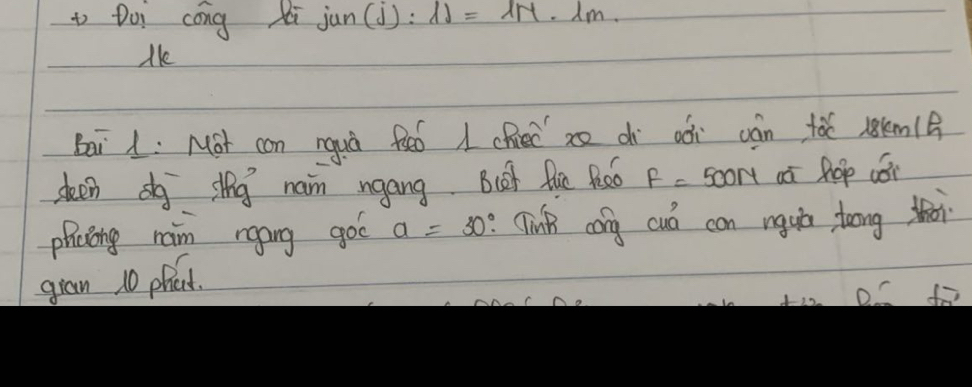 +) Đơi công là jun (j): 1J = 1N. 1m.
1k
Bài 1: Một con ngựa kéo 1 chiếc xe đi với vận tốc 18km/h
trên đg thg nằm ngang. Biết lực kéo F = 500N và hợp với
phương nằm ngang góc a = 30°. Tính công của con ngựa trong thời
gian 10 phút.